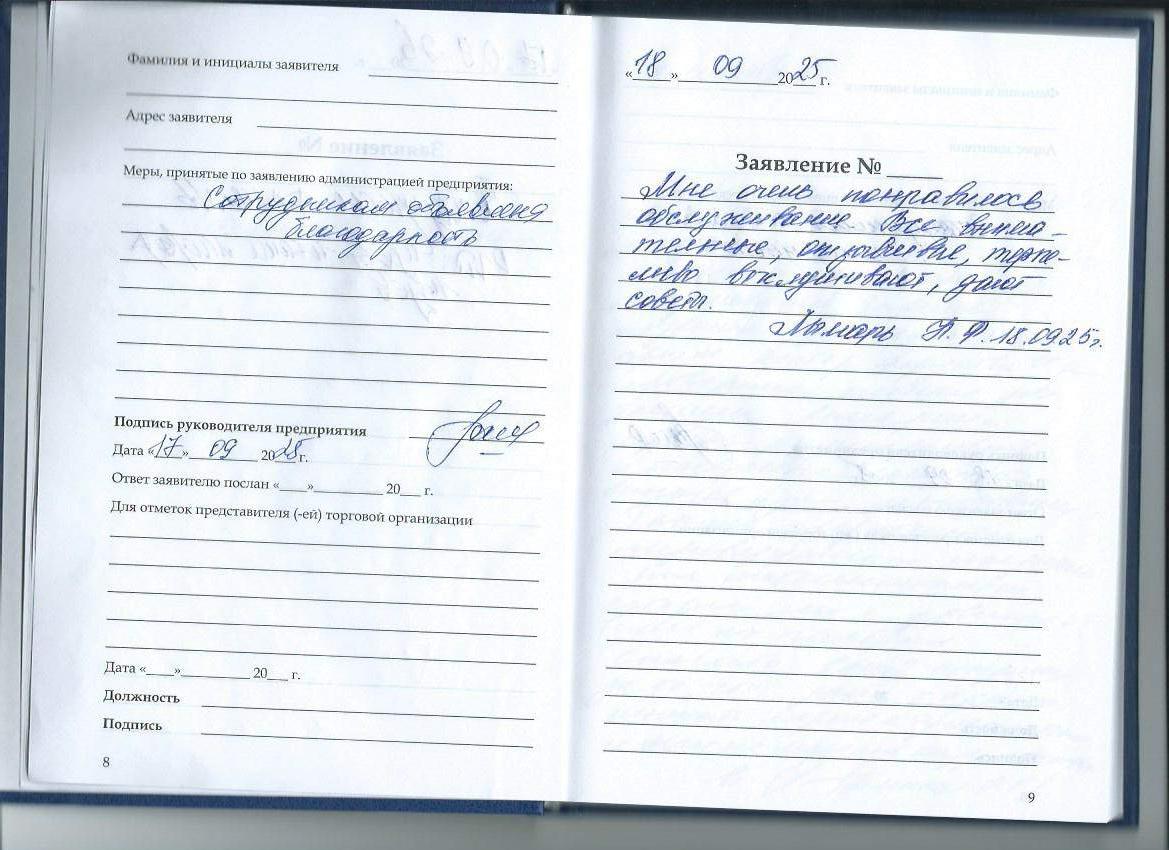 Фамилия и инициалы заявителя
Адрес заявителя
Меры, принятые по заявлению администрацией предприятия:
Сотрудникам объявлена
благодарность
Подпись руководителя предприятия
Дата «17» 09 2025 г.
Ответ заявителю послан «___»__________ 20___ г.
Для отметок представителя (-ей) торговой организации
Дата «____»__________ 20___ г.
Должность
Подпись
8
«18» 09 2025 г.
Заявление № ____
Мне очень понравилось
обслуживание. Все внима-
тельные, отзывчивые, терпе-
ливо выслушивают, дают
совет.
Лымарь Н. Ф. 18.09.25 г.
9